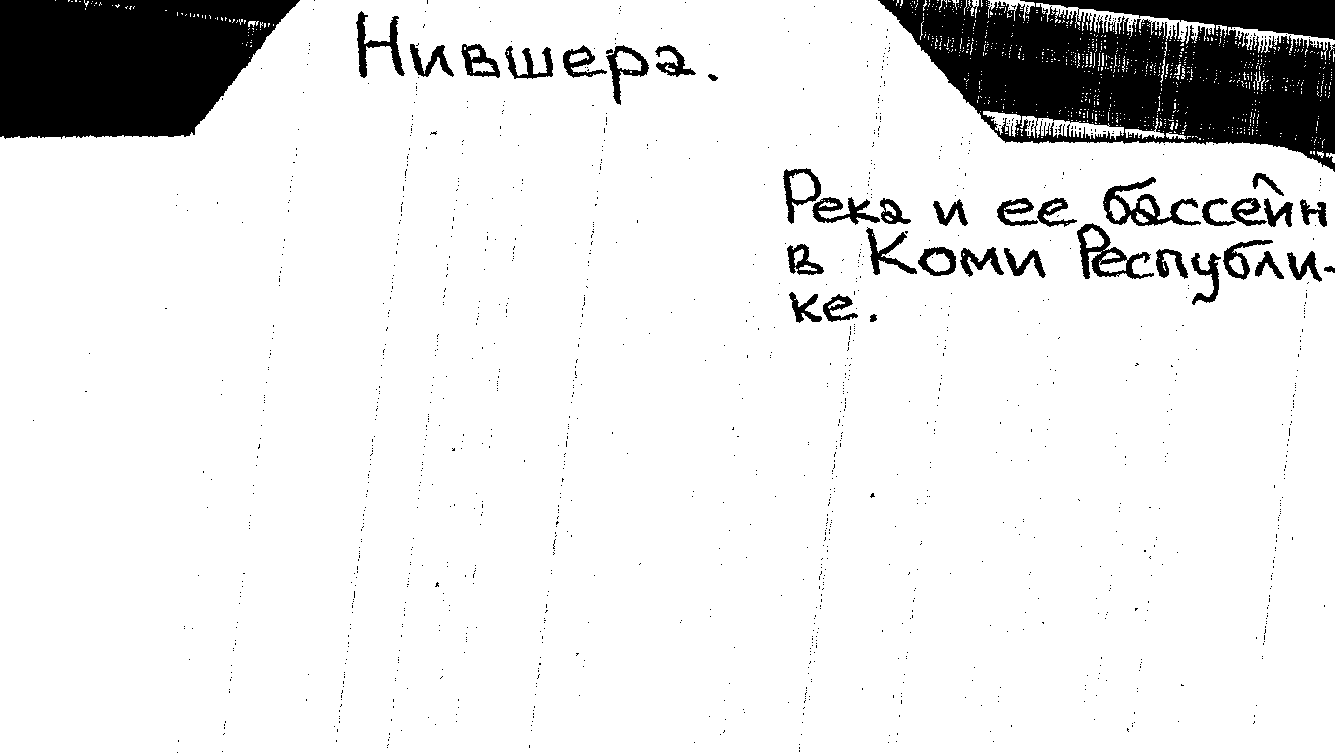 Нившера.
Река и ее бассейн
в Коми Республи-
ке.